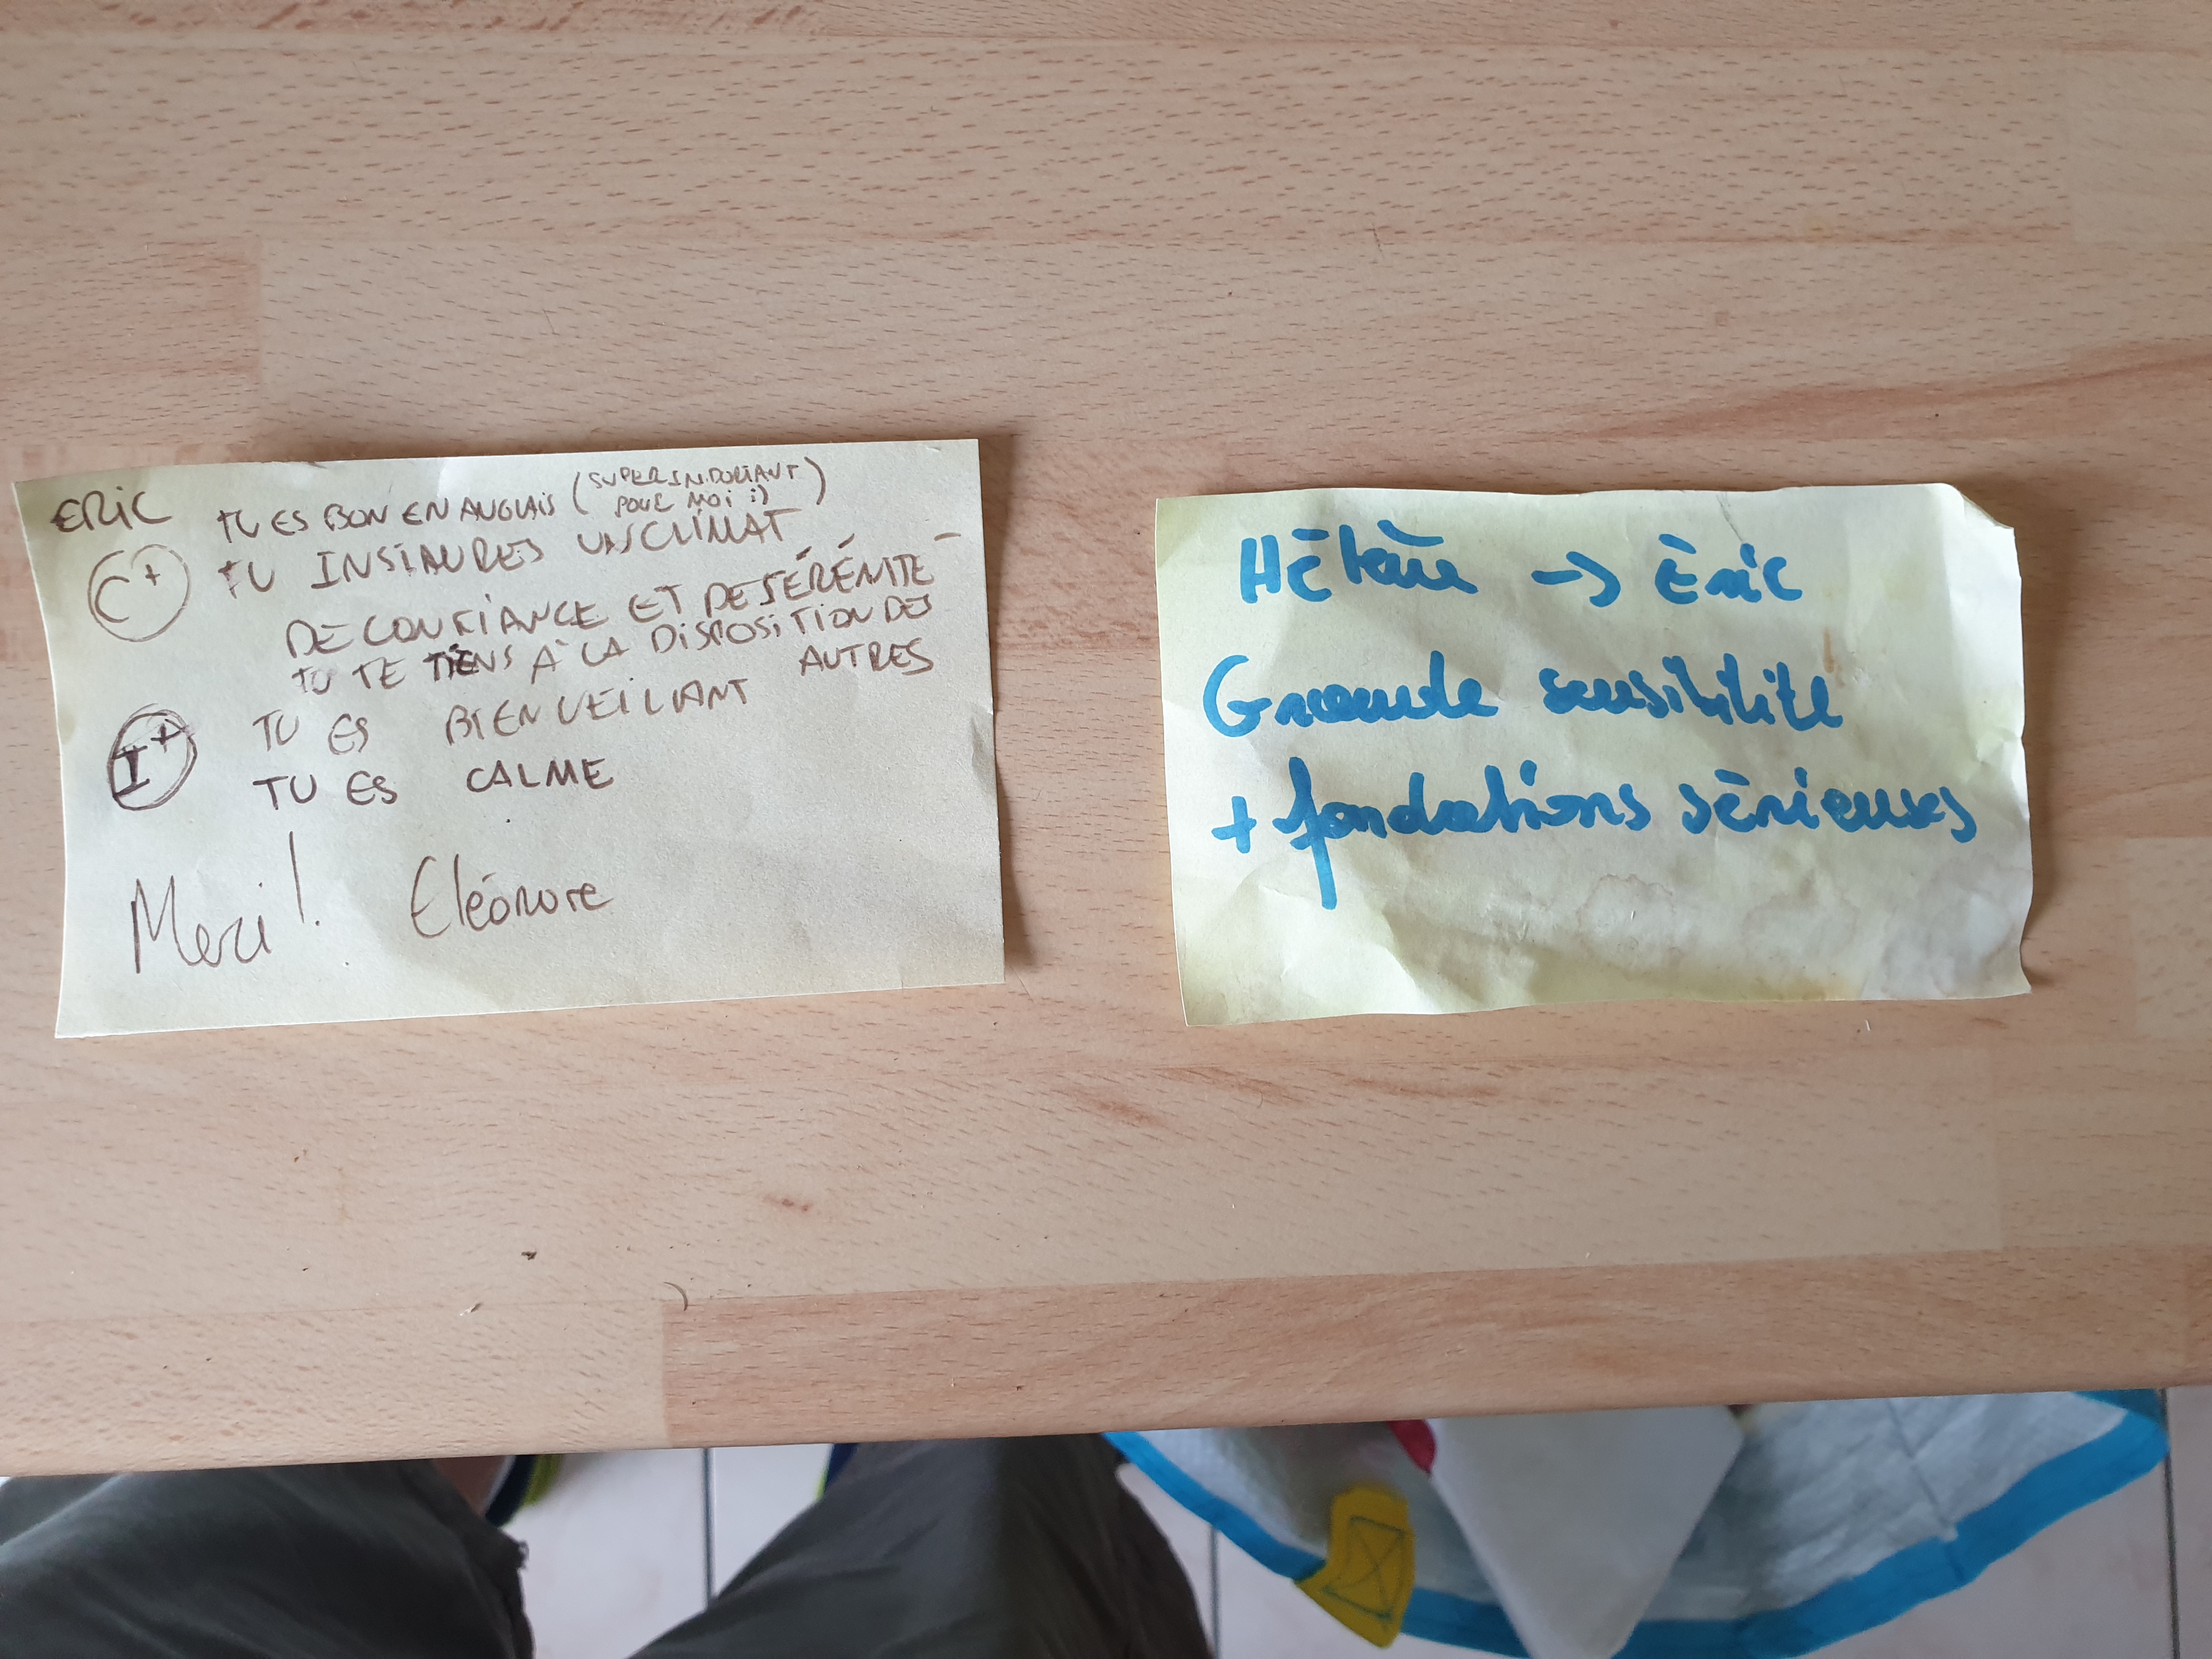 ERIC TU ES BON EN ANGLAIS (SUPER IMPORTANT
POUR MOI :))
C+ TU INSINUES UN CLIMAT
DE CONFIANCE ET DE SÉRÉNITÉ -
TU TE TIENS À LA DISPOSITION DES
AUTRES
I+ TU ES BIENVEILLANT
TU ES CALME
Merci ! Cléonore
Hélène -> Éric
Grande sensibilité
+ fondations sérieuses